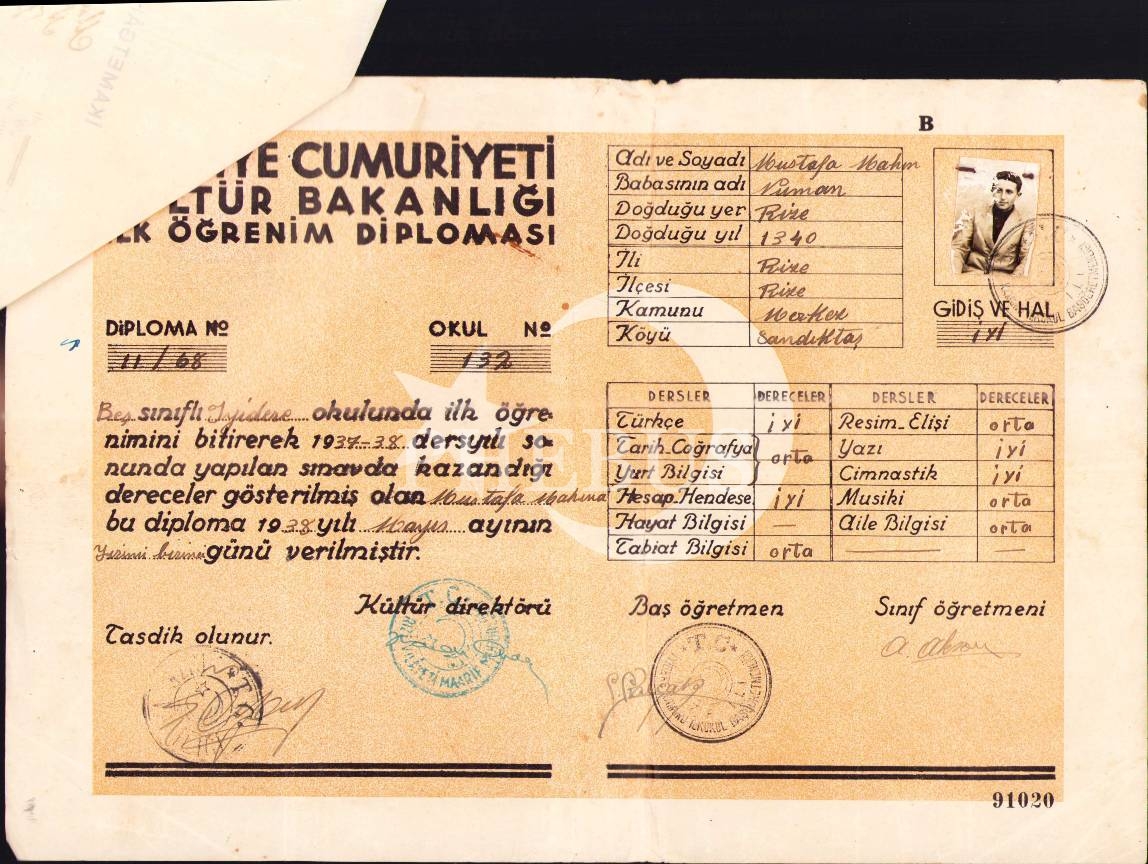 İKAMETGA
B
İYE CUMURİYETİ
LTÜR BAKANLIĞI
İLK ÖĞRENİM DİPLOMASI
DİPLOMA No
11/68
OKUL No
132
Beş sınıflı İyidere okulunda ilk öğre-
nimini bitirerek 1937-38 dersyılı so-
nunda yapılan sınavda kazandığı
dereceler gösterilmiş olan Mustafa Mahm
bu diploma 1938 yılı Mayıs ayının
Yirmi birinci günü verilmiştir.
Kültür direktörü
Tasdik olunur.
Adı ve Soyadı Mustafa Mahm
Babasının adı Numan
Doğduğu yer Rize
Doğduğu yıl 1340
İli Rize
İlçesi Rize
Kamunu Merkez
Köyü Sandıktaş
GİDİŞ VE HAL
iyi
DERSLER DERECELER DERSLER DERECELER
Türkçe iyi Resim-Elişi orta
Tarih-Coğrafya Yazı iyi
Yurt Bilgisi orta Cimnastik iyi
Hesap-Hendese iyi Musiki orta
Hayat Bilgisi — Aile Bilgisi orta
Tabiat Bilgisi orta — —
Baş öğretmen
Sınıf öğretmeni
T.C.
T.C.
T.C.
91020